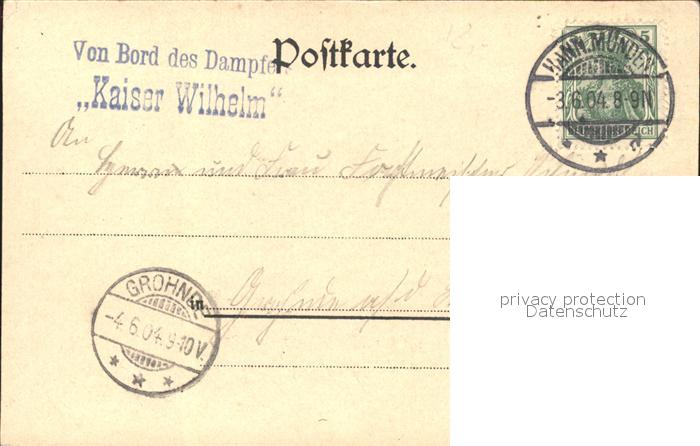 Von Bord des Dampfers Postkarte.
„Kaiser Wilhelm“
5
REICH
HANN. MÜNDEN
-3.6.04.8-9N
An
Herrn und Frau Forstmeister
privacy protection
Datenschutz
GROHNDE
-4.6.04.9-10V.
in
Grohnde a/d